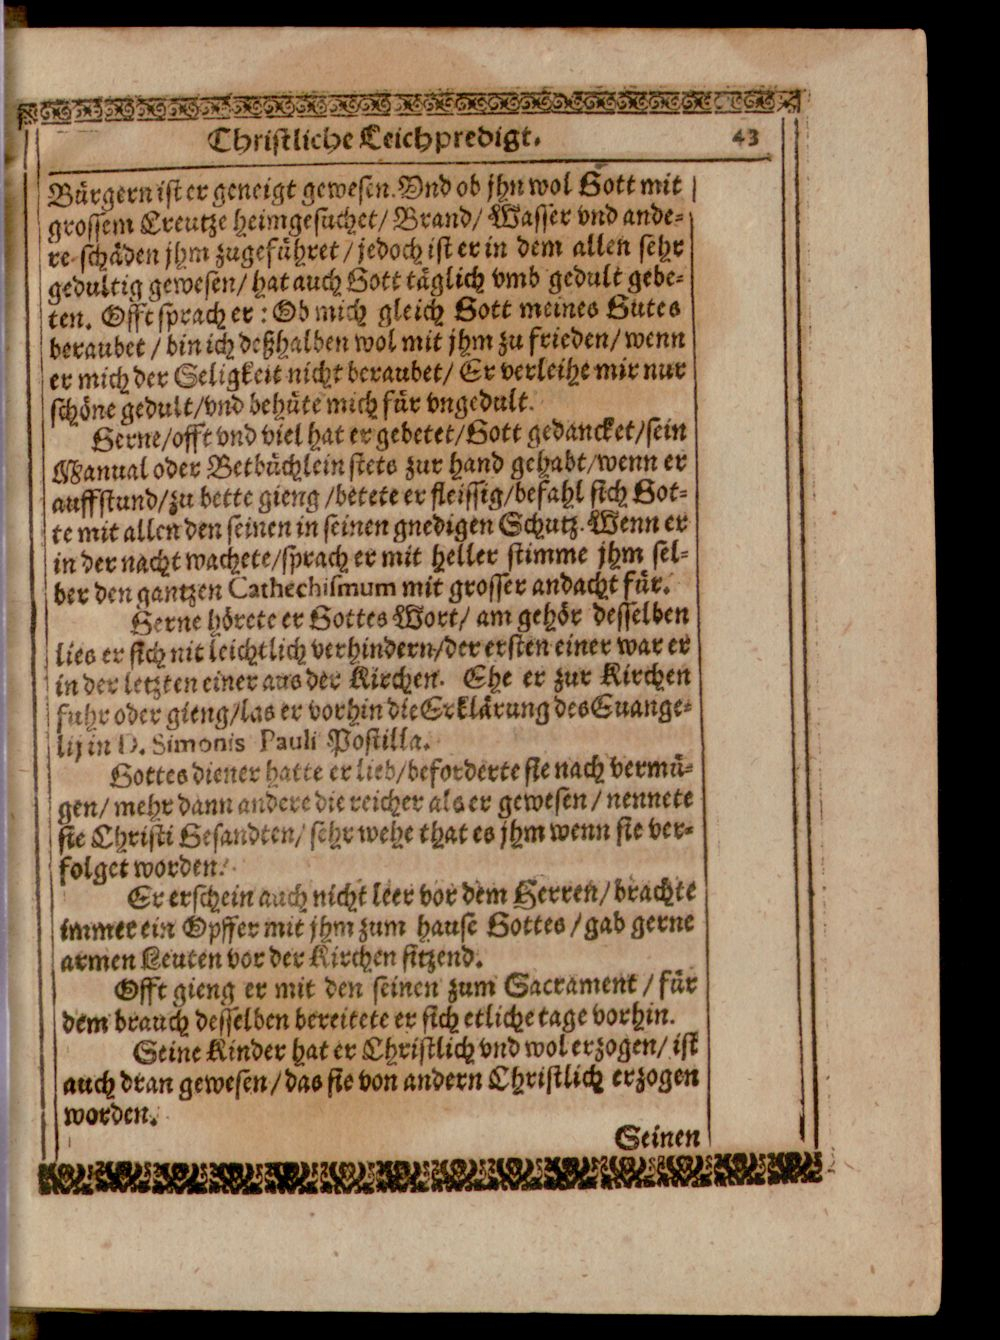 Christliche Leichpredigt. 43
Bürgern ist er geneigt gewesen. Vnd ob jhn wol Gott mit
grossem Creutze heimgesuchet/ Brand/ Wasser vnd ande-
re schäden jhm zugeführet/ jedoch ist er in dem allen sehr
gedultig gewesen/ hat auch Gott täglich vmb gedult gebe-
ten. Offt sprach er: Ob mich gleich Gott meines Gutes
beraubet/ bin ich deßhalben wol mit jhm zu frieden/ wenn
er mich der Seligkeit nicht beraubet/ Er verleihe mir nur
schöne gedult/vnd behüte mich für vngedult.
Gerne/offt vnd viel hat er gebetet/Gott gedancket/sein
Manual oder Betbüchlein stets zur hand gehabt/wenn er
auffstund/zu bette gieng/betete er fleissig/befahl sich Got-
te mit allen den seinen in seinen gnedigen Schutz. Wenn er
in der nacht wachete/sprach er mit heller stimme jhm sel-
ber den gantzen Cathechismum mit grosser andacht für.
Gerne hörete er Gottes Wort/ am gehör desselben
lies er sich nit leichtlich verhindern/der ersten einer war er
in der letzten einer aus der Kirchen. Ehe er zur Kirchen
fuhr oder gieng/las er vorhin die Erklärung des Euange-
lij in D. Simonis Pauli Postilla.
Gottes diener hatte er lieb/beforderte sie nach vermü-
gen/ mehr dann andere die reicher als er gewesen/ nennete
sie Christi Gesandten/ sehr wehe that es jhm wenn sie ver-
folget worden.
Er erschein auch nicht leer vor dem Herren/ brachte
immer ein Opffer mit jhm zum hause Gottes/ gab gerne
armen Leuten vor der Kirchen sitzend.
Offt gieng er mit den seinen zum Sacrament/ für
dem brauch desselben bereitete er sich etliche tage vorhin.
Seine Kinder hat er Christlich vnd wol erzogen/ ist
auch dran gewesen/ das sie von andern Christlich erzogen
worden.
Seinen